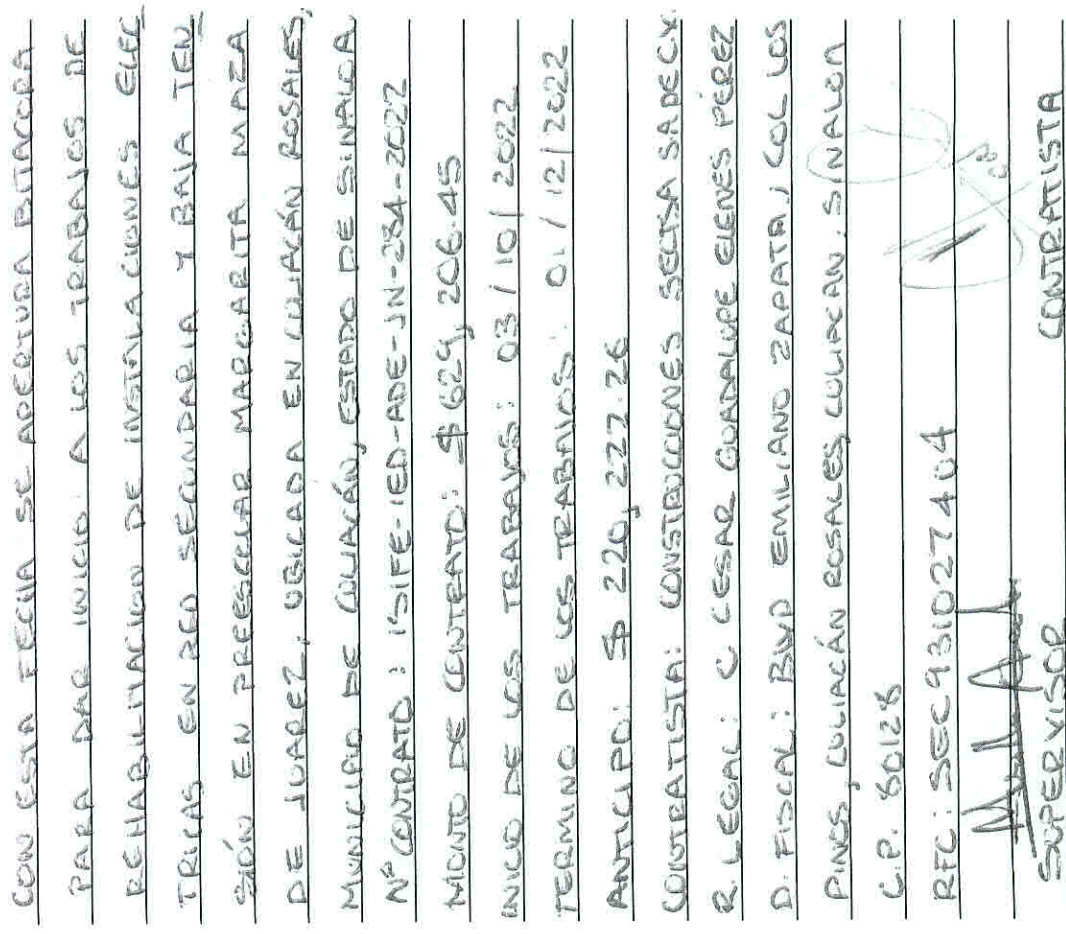 CON ESTA FECHA SE APERTURA BITACORA
PARA DAR INICIO A LOS TRABAJOS DE
REHABILITACION DE INSTALACIONES ELEC
TRICAS EN RED SECUNDARIA Y BAJA TEN
SIÓN EN PREESCOLAR MARGARITA MAZA
DE JUAREZ, UBICADA EN CULIACÁN ROSALES,
MUNICIPIO DE CULIACÁN, ESTADO DE SINALOA
Nº CONTRATO: ISIFE-IED-ADE-JN-234-2022
MONTO DE CONTRATO: $ 629, 206.45
INICIO DE LOS TRABAJOS: 03/10/2022
TERMINO DE LOS TRABAJOS: 01/12/2022
ANTICIPO: $ 220, 227.26
CONTRATISTA: CONSTRUCCIONES SECTSA S.A DE C.V.
R. LEGAL: C CESAR GUADALUPE ELENES PÉREZ
D. FISCAL: BLVD EMILIANO ZAPATA, COL LOS
PINOS, CULIACÁN ROSALES, CULIACAN, SINALOA
C.P. 80128
RFC: SEC931027404
SUPERVISOR CONTRATISTA